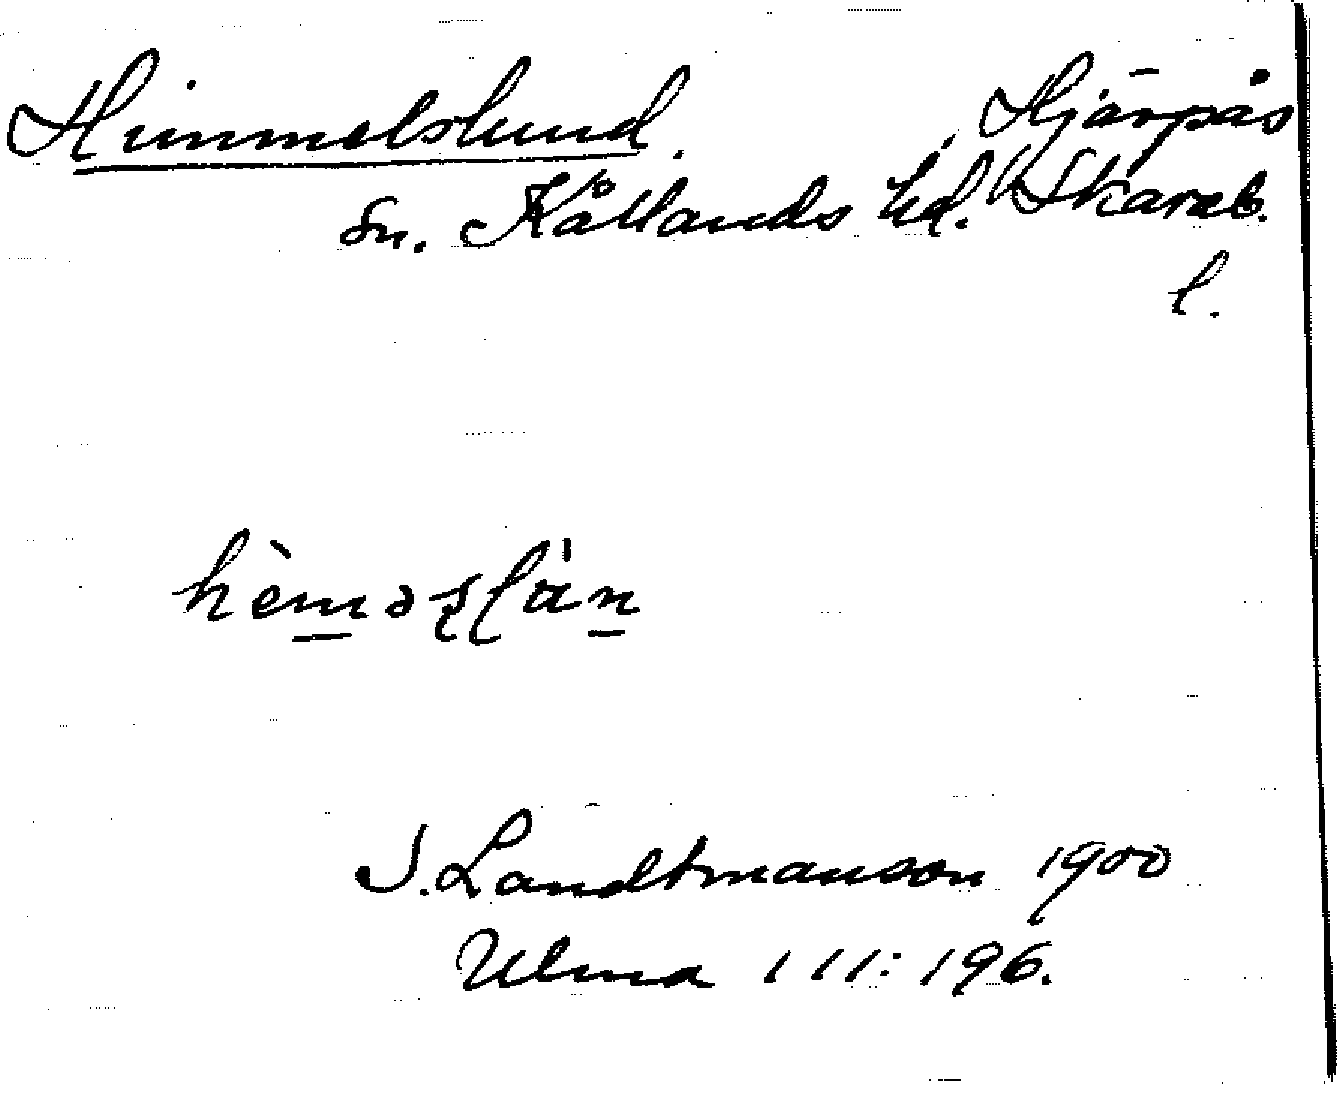 Himmelslund. Hjärpås
sn. Kållands hd. Skarab.
l.
J. Landtmanson 1900
Ulma 111:196.